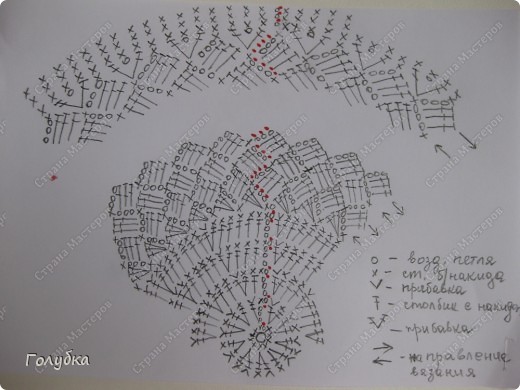 о - возд. петля
х - ст. б/накида
v - прибавка
- столбик с накида
- прибавка
- направление
вязания
Голубка
Страна Мастеров